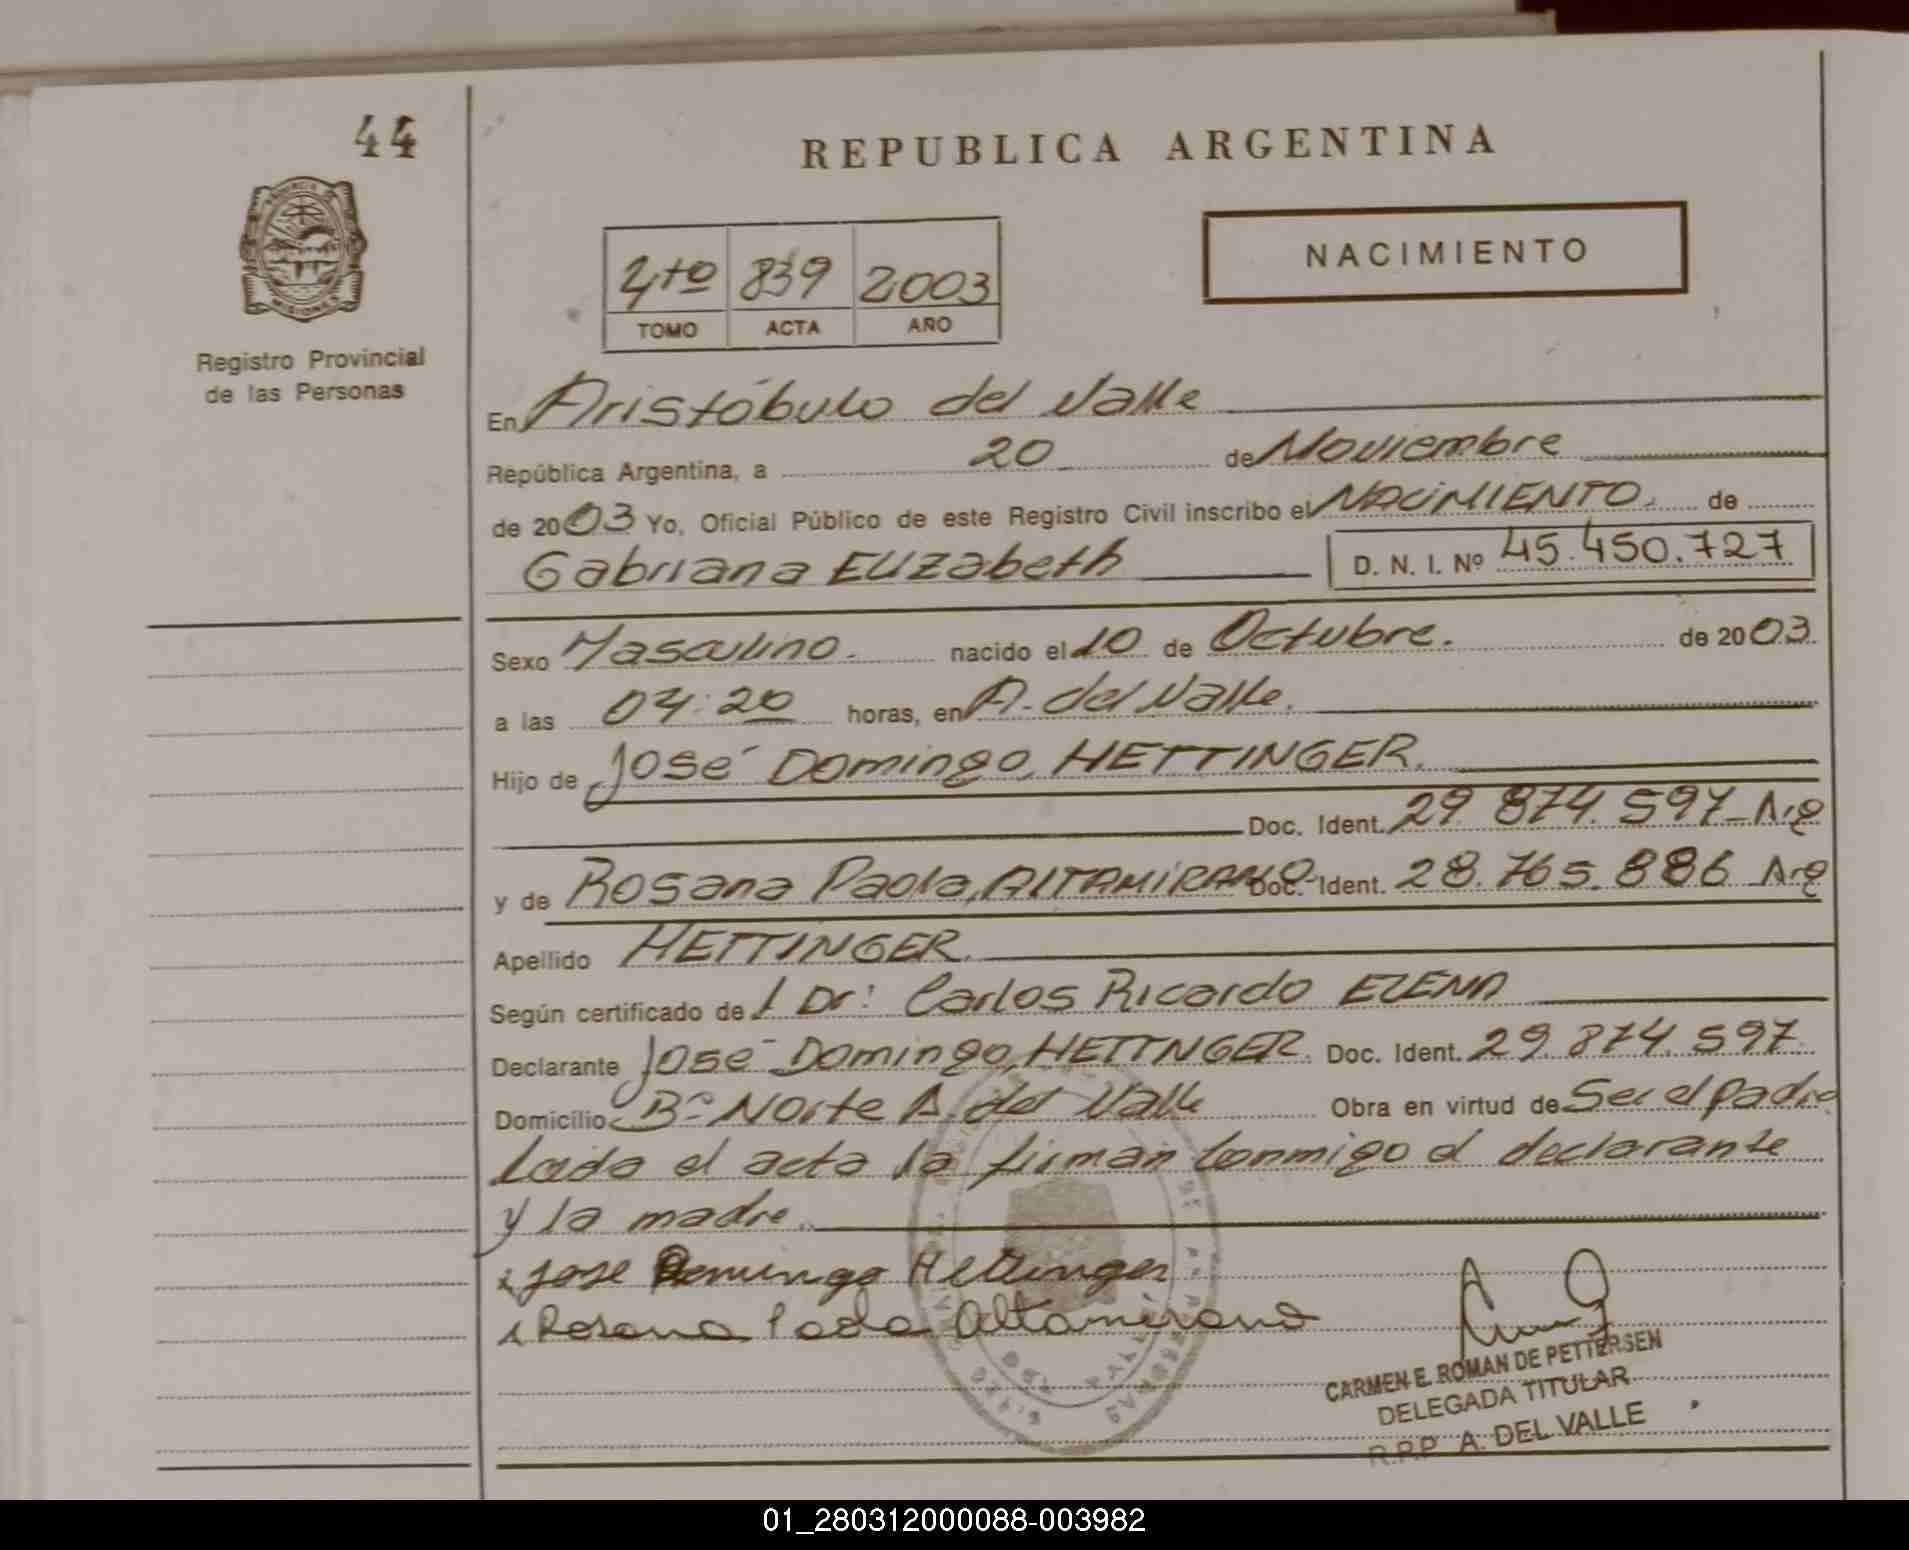 44
REPUBLICA ARGENTINA
4to 839 2003
TOMO ACTA AÑO
NACIMIENTO
Registro Provincial
de las Personas
En Aristóbulo del Valle
República Argentina, a 20 de Noviembre
de 2003 Yo, Oficial Público de este Registro Civil inscribo el NACIMIENTO. de
Gabriana Elizabeth D. N. I. Nº 45.450.727
Sexo Masculino. nacido el 10 de Octubre. de 2003.
a las 04:20 horas, en A. del Valle.
Hijo de José Domingo, HETTINGER.
Doc. Ident. 29.874.597_Arg
y de Rosana Paola, ALTAMIRANO Doc. Ident. 28.765.886 Arg
Apellido HETTINGER.
Según certificado de l Dr: Carlos Ricardo ELENA
Declarante José Domingo, HETTNGER. Doc. Ident. 29.874.597.
Domicilio Bº Norte A. del Valle Obra en virtud de Ser el padre
Leida el acta la firman conmigo el declarante
y la madre.
Jose Domingo Hettinger
Rosana Paola Altamirano
CARMEN E. ROMAN DE PETTERSEN
DELEGADA TITULAR
R.P.P A. DEL VALLE
01_280312000088-003982